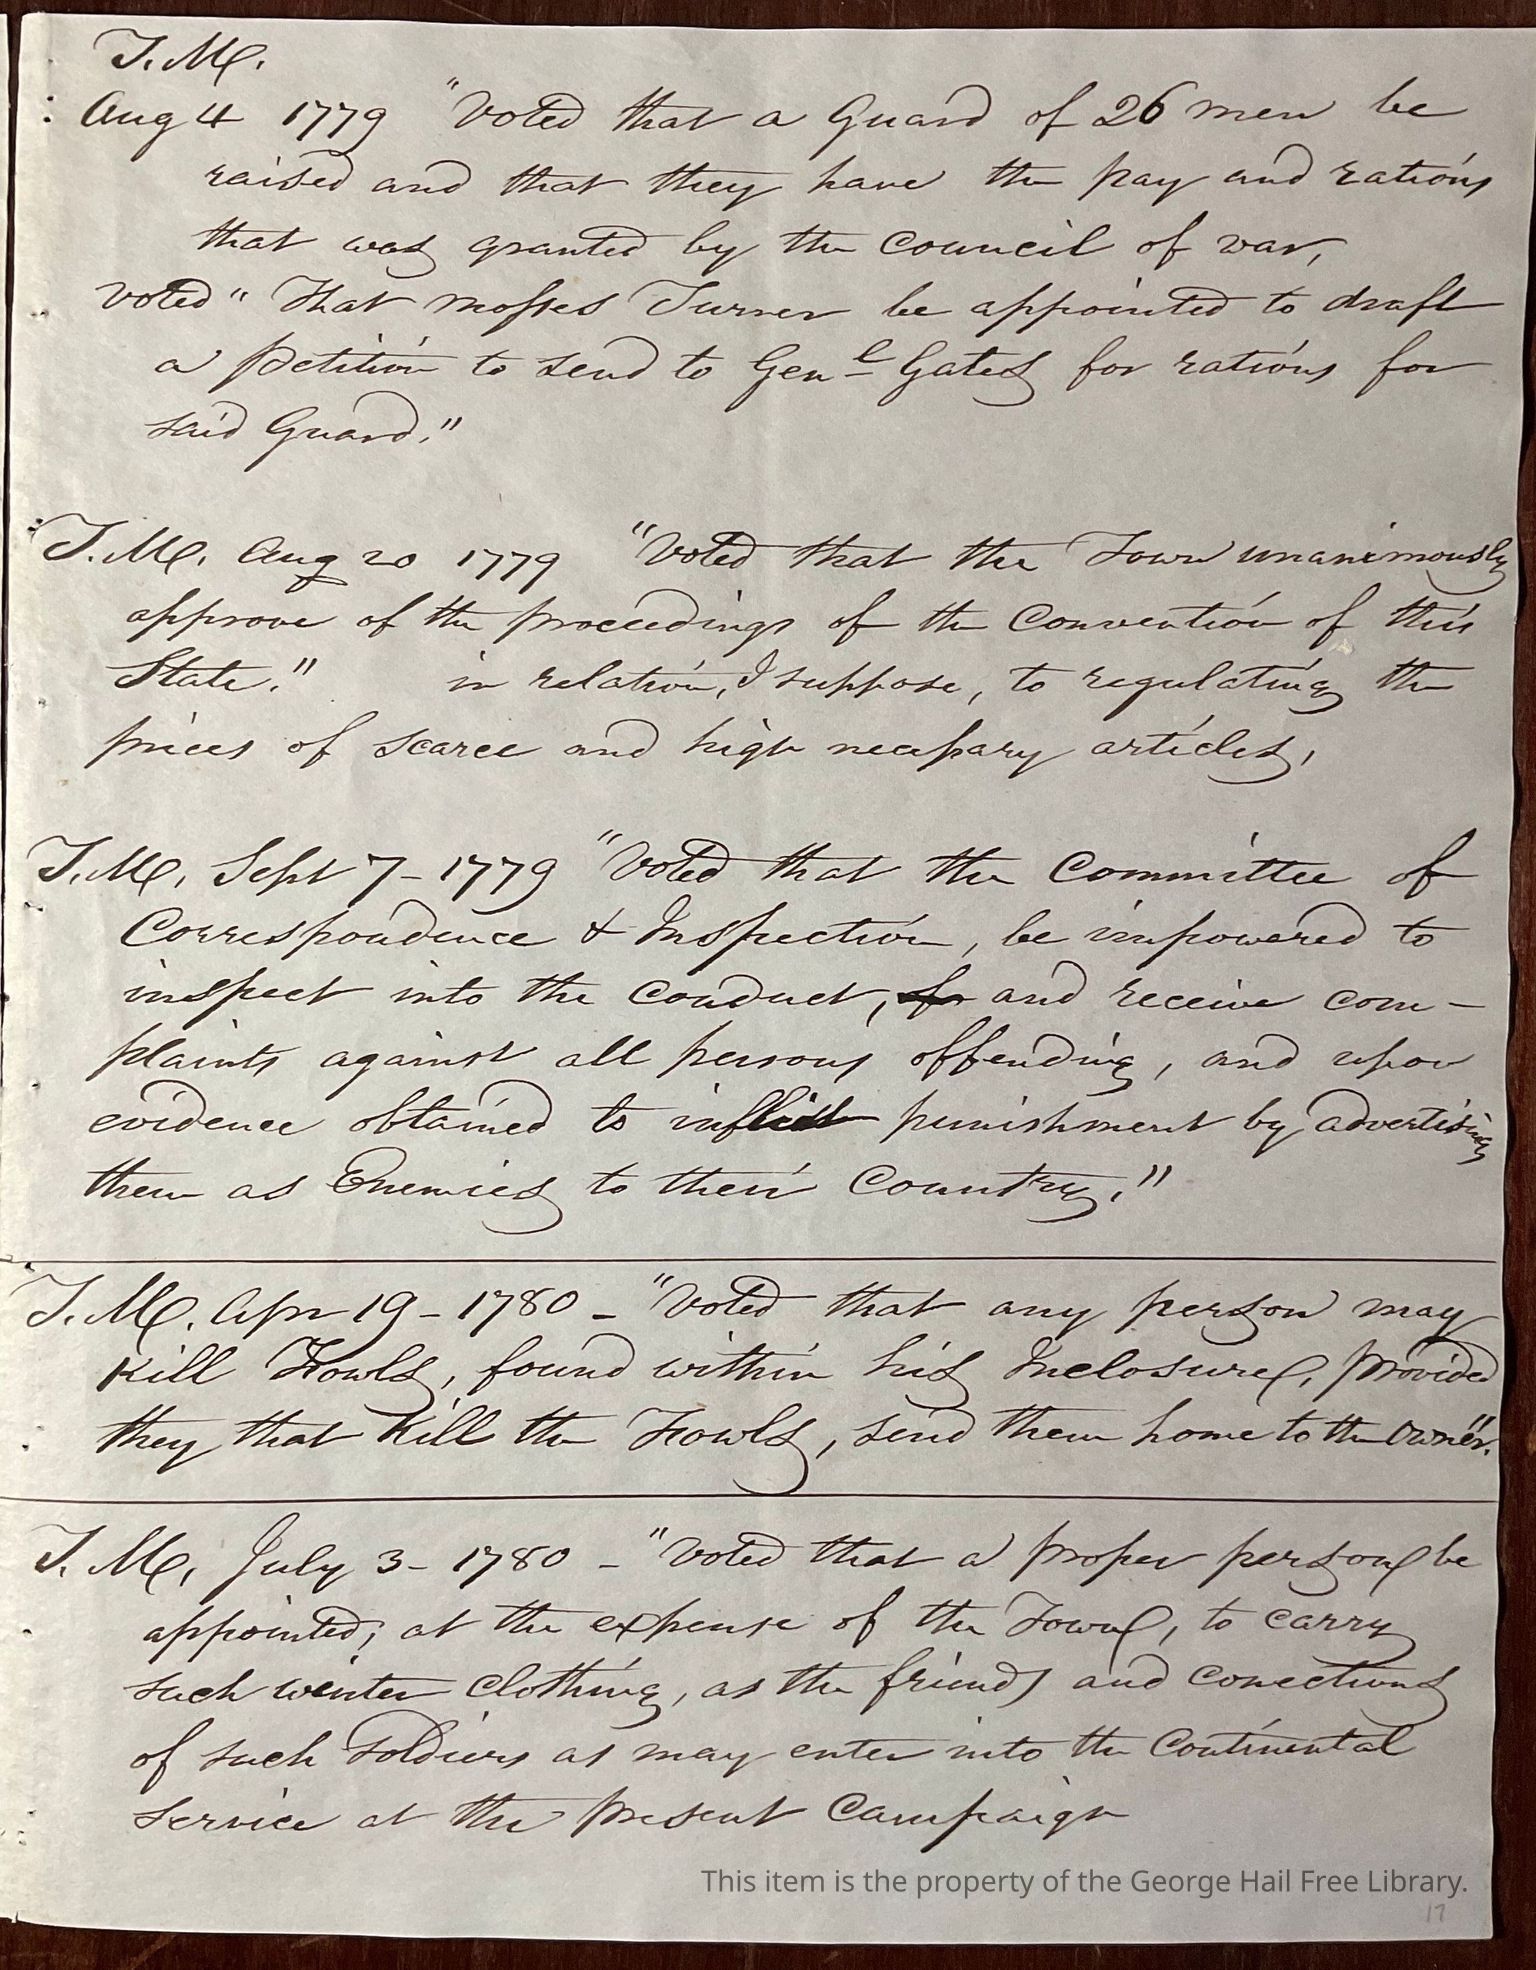 T. M.
Aug 4 1779 "Voted that a Guard of 26 men be
raised and that they have the pay and rations
that was granted by the Council of war,
voted" that Mosses Turner be appointed to draft
a petition to send to Genl Gates for rations for
said Guard."
T. M. Aug 20 1779 "Voted that the Town unanimously
approve of the proceedings of the Convention of this
State." in relation, I suppose, to regulating the
prices of scarce and high necessary articles,
T. M, Sept 7 - 1779 "Voted that the Committee of
Correspondence & Inspection, be impowered to
inspect into the conduct, and receive com-
plaints against all persons offending, and upon
evidence obtained to inflict punishment by advertising
them as Enemies to their Country."
T. M. Apr 19 - 1780 - "Voted that any person may
Kill Fowls, found within his Inclosure, provided
they that Kill the Fowls, send them home to the owner".
T. M, July 3 - 1780 - "Voted that a proper person be
appointed, at the expense of the Town, to carry
such winter clothing, as the friends and conections
of such soldiers as may enter into the Continental
service at the present Campaign
This item is the property of the George Hail Free Library.
17